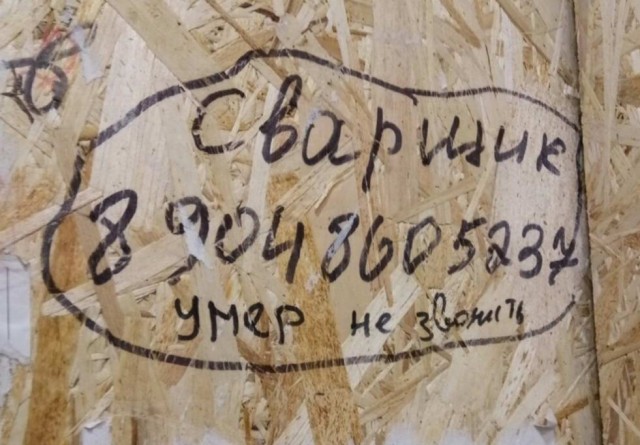 Сварщик
8 904 8605237
умер не звонить